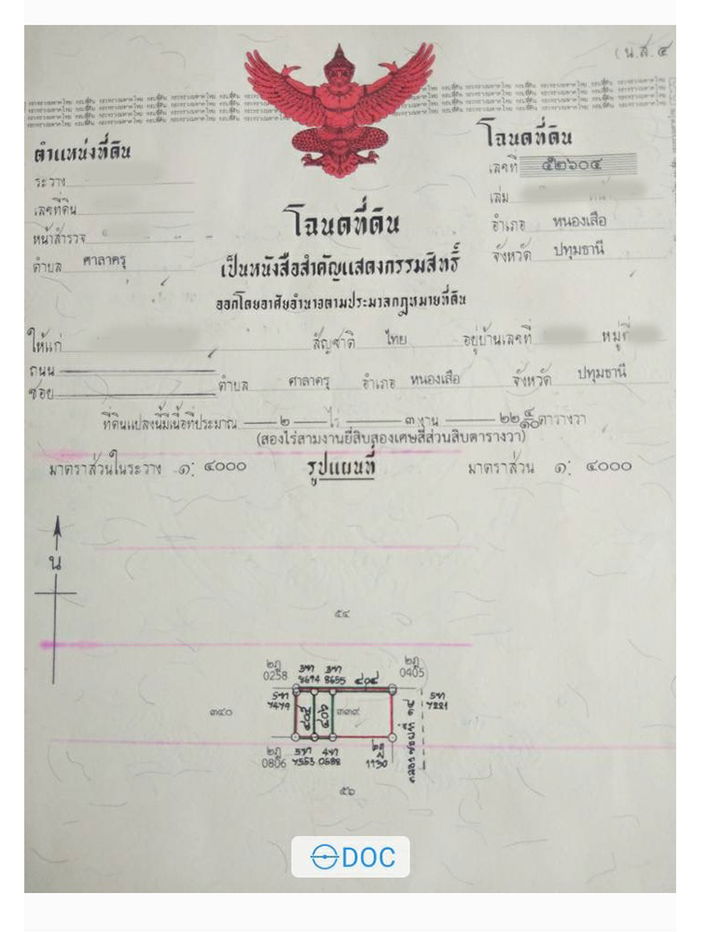 (น.ส. ๔
ตำแหน่งที่ดิน
ระวาง
เลขที่ดิน
หน้าสำรวจ
ตำบล ศาลาครุ
โฉนดที่ดิน
เลขที่ ๕๒๖๐๔
เล่ม
อำเภอ หนองเสือ
จังหวัด ปทุมธานี
โฉนดที่ดิน
เป็นหนังสือสำคัญแสดงกรรมสิทธิ์
ออกโดยอาศัยอำนาจตามประมวลกฎหมายที่ดิน
ให้แก่ สัญชาติ ไทย อยู่บ้านเลขที่ หมู่ที่
ถนน
ซอย ตำบล ศาลาครุ อำเภอ หนองเสือ จังหวัด ปทุมธานี
ที่ดินแปลงนี้มีเนื้อที่ประมาณ ๒ ไร่ ๓ งาน ๒๒ ๔/๑๐ ตารางวา
(สองไร่สามงานยี่สิบสองเศษสี่ส่วนสิบตารางวา)
มาตราส่วนในระวาง ๑: ๔๐๐๐ รูปแผนที่ มาตราส่วน ๑: ๔๐๐๐
น
๕๔
๒ฎ 0258
8694
8655
๔๐๔
๒ฎ 0405
7479
๓๔๐
๔๐๕
๔๐๖
๓๓๙
7281
คลองซอยที่ ๑๔
๒ฎ 0806
7553
0588
1130
๕๖
DOC